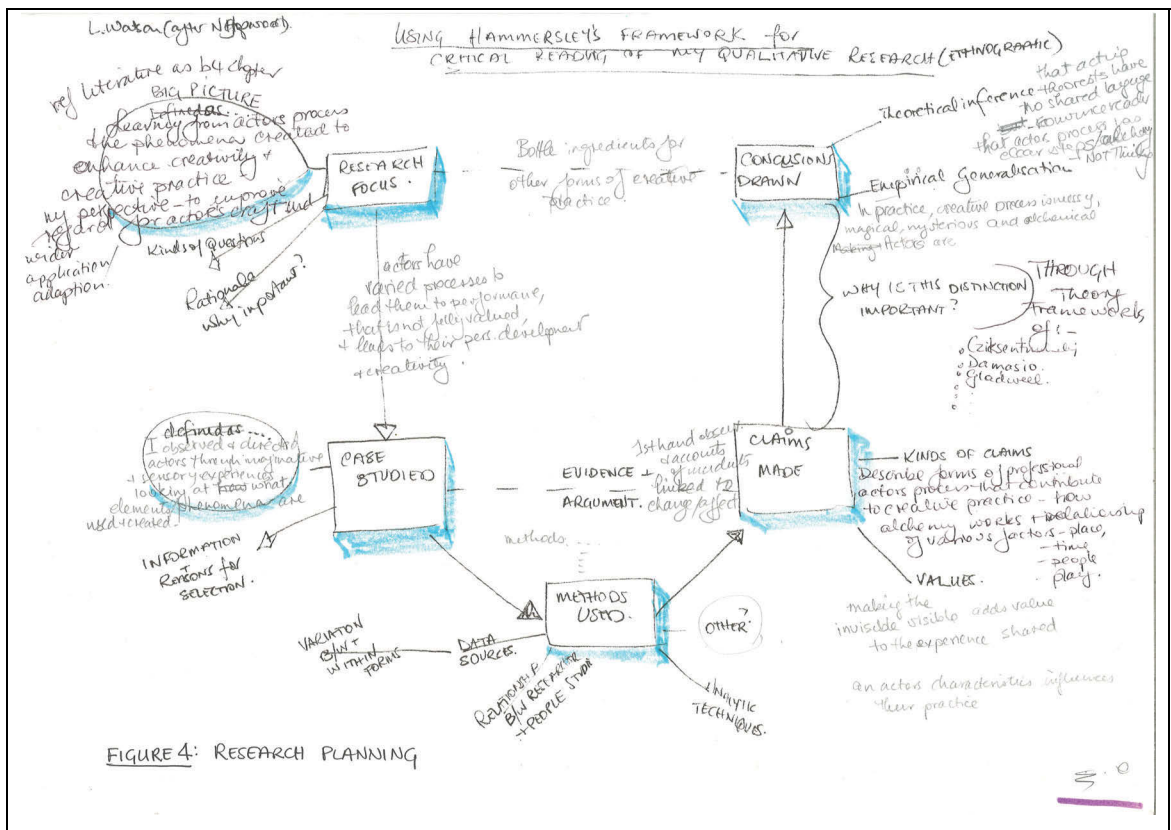 L. Watson (after N Hopwood).
USING HAMMERSLEY'S FRAMEWORK for
CRITICAL READING OF MY QUALITATIVE RESEARCH (ETHNOGRAPHIC)
ref literature as b4 chapter
BIG PICTURE
defined as...
Learning from actors process
the phenomena created to
enhance creativity +
creative practice
my perspective - to improve
regard for actors craft and
wider
application
adaption.
Kinds of Questions
Rationale
why important?
RESEARCH
FOCUS.
Bottle ingredients for
other forms of creative
practice.
CONCLUSIONS
DRAWN
Theoretical inference
that acting
theorists have
no shared language
convince reader
that actors process has
+ Not Things
Empirical Generalisation
In practice, creative process is messy,
magical, mysterious and alchemical
Making Actors are
WHY IS THIS DISTINCTION
IMPORTANT?
THROUGH
Theory
Frameworks,
of :-
Damasio.
Gladweel.
actors have
varied processes to
lead them to performance,
that is not fully valued
+ leads to their pers. development
+ creativity.
defined as....
I observed + directed
actors through imaginative
+ sensory experiences
looking at how what
elements phenomena are
used + created.
INFORMATION
+
Reasons for
SELECTION.
CASE
STUDIED
EVIDENCE +
ARGUMENT.
1st hand observ.
+ accounts
of incidents
linked to
change/effect
CLAIMS
MADE
KINDS OF CLAIMS
Describe forms of professional
actors process that contribute
to creative practice - how
alchemy works + relationship
of various factors - place,
- time
- people
- play.
VALUES.
making the
invisible visible adds value
to the experience shared
an actors characteristics influences
their practice
methods....
METHODS
USED.
OTHER?
VARIATION
B/W +
WITHIN
FORMS
DATA
SOURCES.
RELATIONSHIP
B/W RESEARCHER
+ PEOPLE STUDY
ANALYTIC
TECHNIQUES.
FIGURE 4: RESEARCH PLANNING